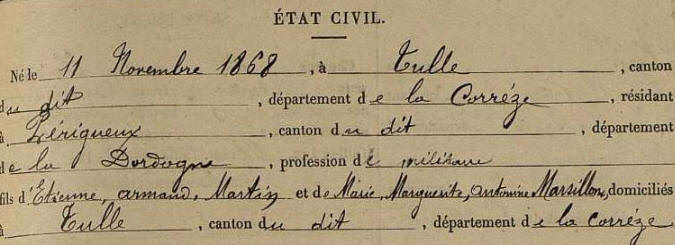 ÉTAT CIVIL.
Né le 11 Novembre 1868, à Tulle, canton
du dit, département de la Corréze, résidant
à Périgueux, canton du dit, département
de la Dordogne, profession de militaire
fils d'Etienne, armand, Martin et de Marie, Marguerite, antonine Marsillon, domiciliés
à Tulle, canton du dit, département de la Corréze